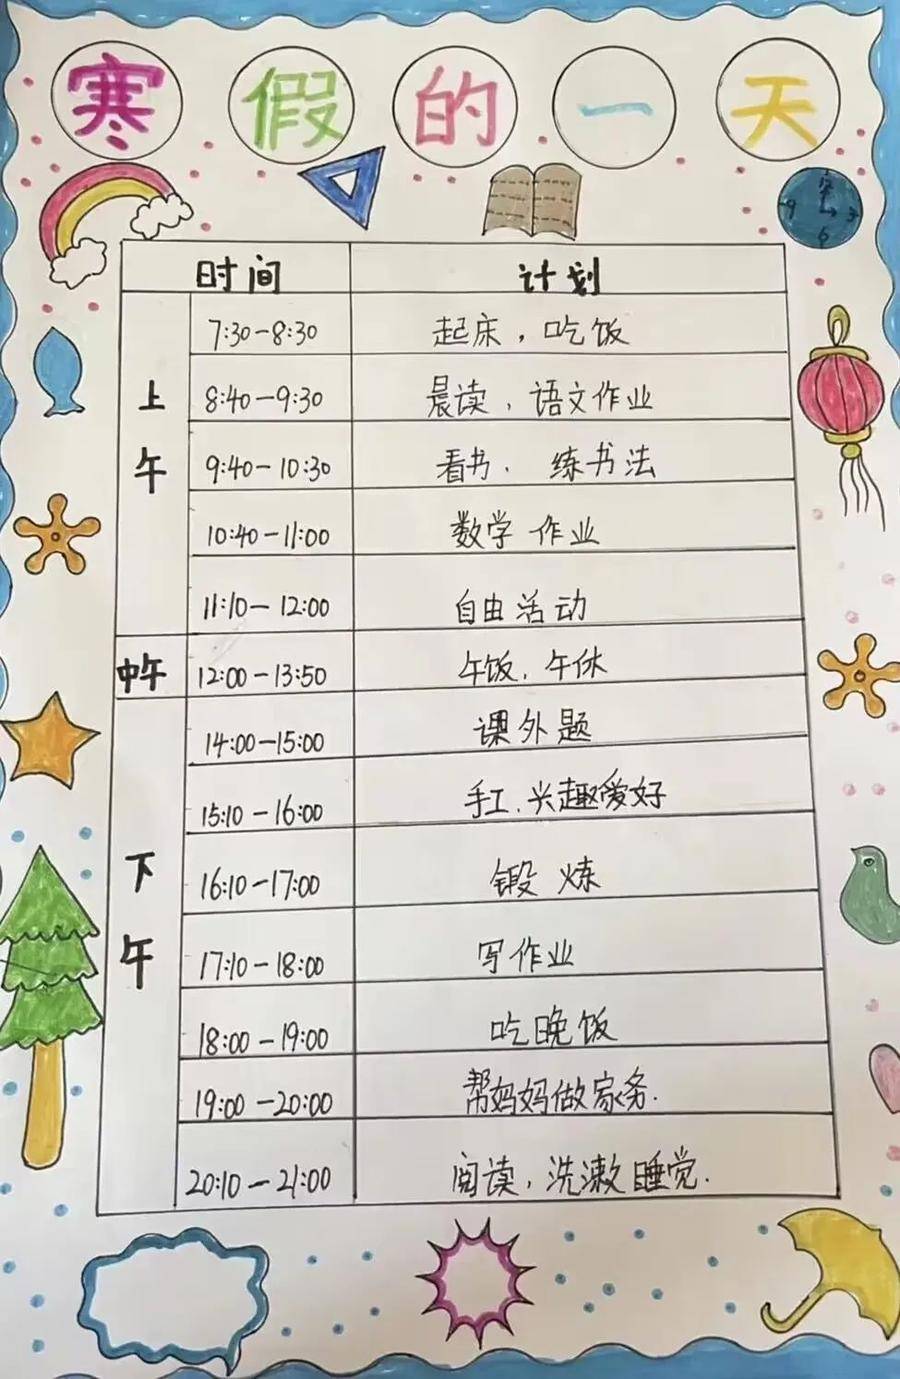 寒假的一天
时间 计划
上午
7:30-8:30 起床，吃饭
8:40-9:30 晨读，语文作业
9:40-10:30 看书、练书法
10:40-11:00 数学作业
11:10-12:00 自由活动
中午 12:00-13:50 午饭，午休
下午
14:00-15:00 课外题
15:10-16:00 手工、兴趣爱好
16:10-17:00 锻炼
17:10-18:00 写作业
18:00-19:00 吃晚饭
19:00-20:00 帮妈妈做家务.
20:10-21:00 阅读，洗漱睡觉.